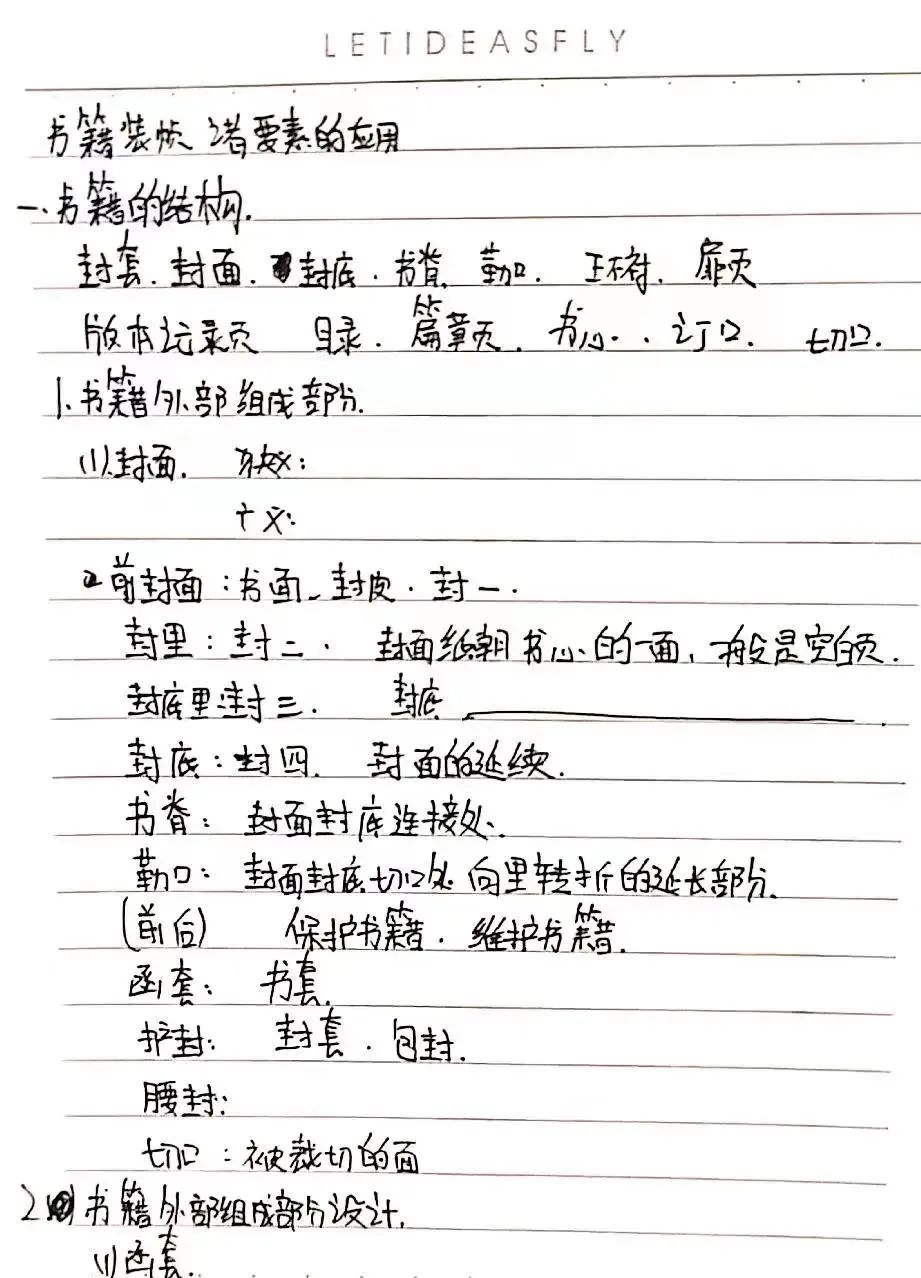 LETIDEASFLY
书籍装帧 诸要素的应用
一.书籍的结构.
封套.封面.封底.书脊.勒口.环衬.扉页
版本记录页 目录.篇章页.书心..订口.切口.
1.书籍外部组成部分.
(1)封面. 狭义:
广义:
②前封面:书面、封皮.封一.
封里:封二. 封面纸朝书心的一面,一般是空白页.
封底里:封三. 封底
封底:封四. 封面的延续.
书脊: 封面封底连接处.
勒口: 封面封底切口处向里转折的延长部分.
(前后) 保护书籍.维护书籍.
函套: 书套.
护封: 封套.包封.
腰封:
切口:被裁切的面
2.书籍外部组成部分设计.
(1)函套.